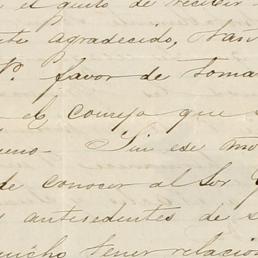 el gusto de recibir
agradecido, tan
favor de toma
el consejo que
Sin ese mo
de conocer al Sor
antecedentes de s
mucho tener relacion